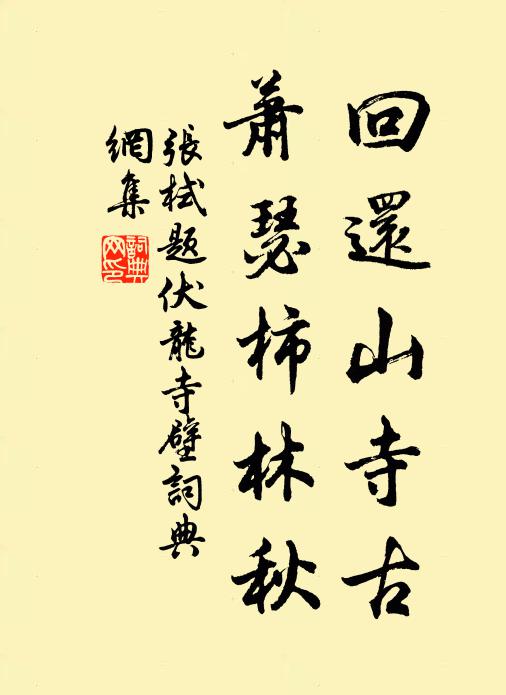 回還山寺古
蕭瑟柿林秋
張栻題伏龍寺壁詞典
網集
詞典網印